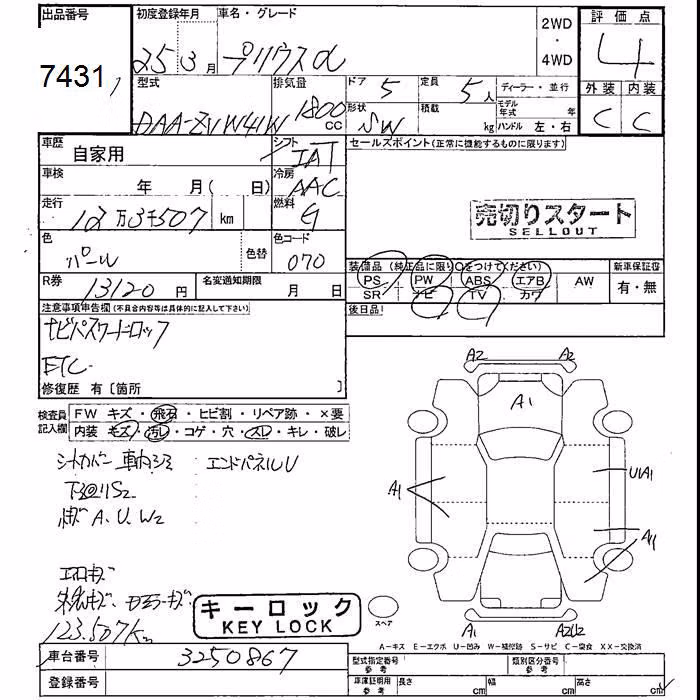 出品番号 初度登録年月 車名・グレード 2WD 評価点
7431 25年 3月 プリウスα ・ 4
4WD 外装 内装
型式 排気量 ドア 5 定員 5人 ディーラー・並行 C C
DAA-ZVW41W 1800 CC 形状 SW 積載 kg モデル年式 年 ハンドル 左・右
車歴 自家用 シフト IAT セールスポイント(正常に機能するものに限ります)
車検 年 月( 日) 冷房 AAC
走行 12万3千507 km 燃料 G 売切りスタート
SELLOUT
色 パール 色替 色コード 070
装備品(純正品に限り○をつけてください) 新車保証書
R券 13120円 名変通知期限 月 日 PS PW ABS エアB AW 有・無
SR ナビ TV カワ
注意事項申告欄(不具合内容等は具体的に記入して下さい) 後日品
ナビパスワードロック
ETC
修復歴 有〔箇所
検査員 FW キズ・飛石・ヒビ割・リペア跡・×要
記入欄 内装 キズ・汚れ・コゲ・穴・スレ・キレ・破レ
シートカバー 車内シミ エンドパネルU
A、U、W2
エアロキズ
123.507km
キーロック
KEY LOCK
A2 A2
A1
A1 U1A1
A1
スペア A1 A2U2
A-キズ E-エクボ U-凹み W-補修跡 S-サビ C-腐食 XX-交換済
車台番号 3250867 型式指定番号 参考 類別区分番号 参考
登録番号 車庫証明用 参考 長さ cm 幅 cm 高さ cm